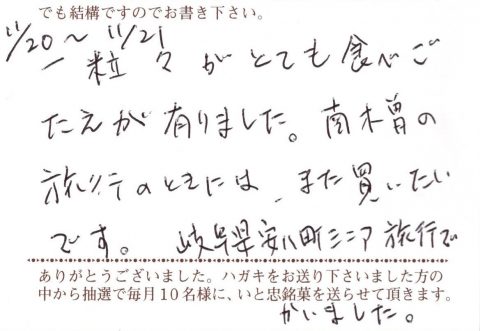 でも結構ですのでお書き下さい。
11/20〜11/21
一粒々がとても食べご
たえが有りました。南木曽の
旅行のときには、また買いたい
です。 岐阜県安八町シニア旅行で
ありがとうございました。ハガキをお送り下さいました方の
中から抽選で毎月10名様に、いと忠銘菓を送らせて頂きます。
かいました。